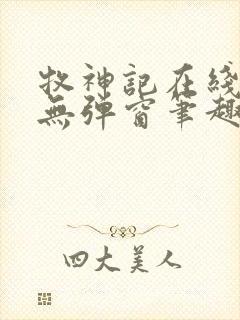 牧神記在綫
無彈窗筆趣
四大美人